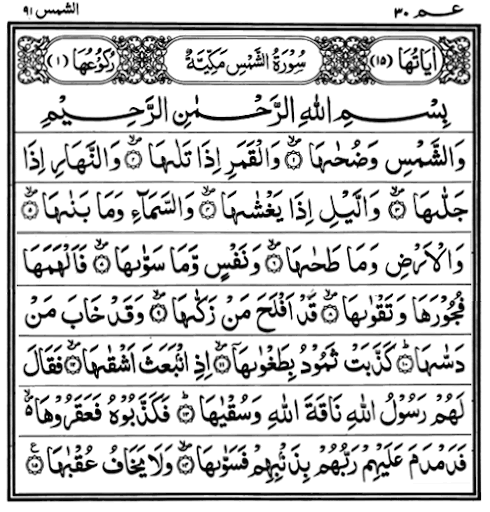 عـم ٣٠ الشمس ٩١
اٰيَاتُهَا (١٥) سُوْرَةُ الشَّمْسِ مَكِّيَّةٌ رُكُوْعُهَا (١)
بِسْمِ اللهِ الرَّحْمٰنِ الرَّحِيْمِ
وَالشَّمْسِ وَضُحٰىهَا ۙ﴿١﴾ وَالْقَمَرِ اِذَا تَلٰىهَا ۙ﴿٢﴾ وَالنَّهَارِ اِذَا
جَلّٰىهَا ۙ﴿٣﴾ وَالَّيْلِ اِذَا يَغْشٰىهَا ۙ﴿٤﴾ وَالسَّمَآءِ وَمَا بَنٰىهَا ۙ﴿٥﴾
وَالْاَرْضِ وَمَا طَحٰىهَا ۙ﴿٦﴾ وَنَفْسٍ وَّمَا سَوّٰىهَا ۙ﴿٧﴾ فَاَلْهَمَهَا
فُجُوْرَهَا وَتَقْوٰىهَا ۙ﴿٨﴾ قَدْ اَفْلَحَ مَنْ زَكّٰىهَا ۙ﴿٩﴾ وَقَدْ خَابَ مَنْ
دَسّٰىهَا ۙ﴿١٠﴾ كَذَّبَتْ ثَمُوْدُ بِطَغْوٰىهَآ ۙ﴿١١﴾ اِذِ انْۢبَعَثَ اَشْقٰىهَا ۙ﴿١٢﴾ فَقَالَ
لَهُمْ رَسُوْلُ اللهِ نَاقَةَ اللهِ وَسُقْيٰهَا ۙ﴿١٣﴾ فَكَذَّبُوْهُ فَعَقَرُوْهَا ۙ
فَدَمْدَمَ عَلَيْهِمْ رَبُّهُمْ بِذَنْۢبِهِمْ فَسَوّٰىهَا ۙ﴿١٤﴾ وَلَا يَخَافُ عُقْبٰهَا ﴿١٥﴾ ع